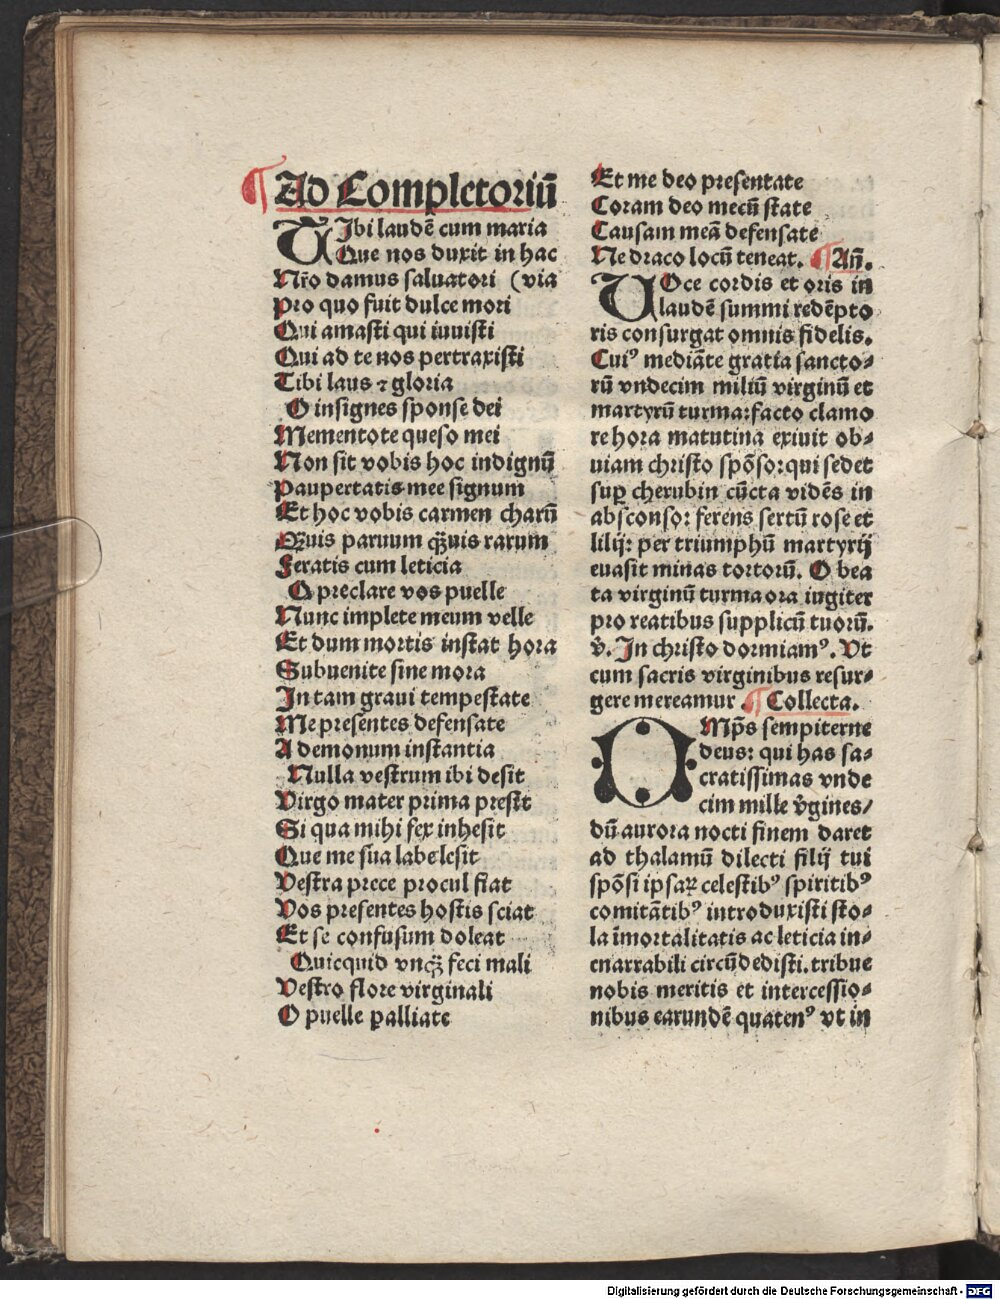 ¶ Ad Completoriū
TIbi laudē cum maria
Que nos duxit in hac
Nr̄o damus saluatori (via
Pro quo fuit dulce mori
Qui amasti qui iuuisti
Qui ad te nos pertraxisti
Tibi laus ⁊ gloria
O insignes sponse dei
Mementote queso mei
Non sit vobis hoc indignū
Paupertatis mee signum
Et hoc vobis carmen charū
Qꝫuis paruum qꝫuis rarum
Feratis cum leticia
O preclare vos puelle
Nunc implete meum velle
Et dum mortis instat hora
Subuenite sine mora
In tam graui tempestate
Me presentes defensate
A demonum instantia
Nulla vestrum ibi desit
Virgo mater prima presit
Si qua mihi fex inhesit
Que me sua labe lesit
Vestra prece procul fiat
Vos presentes hostis sciat
Et se confusum doleat
Quicquid vnqꝫ feci mali
Vestro flore virginali
O puelle palliate
Et me deo presentate
Coram deo mecū state
Causam meā defensate
Ne draco locū teneat. ¶ Añ.
VOce cordis et oris in
laudē summi redēpto
ris consurgat omnis fidelis.
Cuiꝰ mediāte gratia sancto⸗
rū vndecim miliū virginū et
martyrū turma: facto clamo
re hora matutina exiuit ob⸗
uiam christo spōso: qui sedet
suꝑ cherubin cūcta vidēs in
absconso: ferens sertū rose et
lilij: per triumphū martyrij
euasit minas tortorū. O bea
ta virginū turma ora iugiter
pro reatibus supplicū tuorū.
v̄. In christo dormiamꝰ. Vt
cum sacris virginibus resur⸗
gere mereamur. ¶ Collecta.
OMp̄s sempiterne
deus: qui has sa⸗
cratissimas vnde
cim mille v̄gines/
dū aurora nocti finem daret
ad thalamū dilecti filij tui
spōsi ipsaꝝ celestibꝰ spiritibꝰ
comitātibꝰ introduxisti sto⸗
la īmortalitatis ac leticia in⸗
enarrabili circūdedisti. tribue
nobis meritis et intercessio⸗
nibus earundē quatenꝰ vt in
Digitalisierung gefördert durch die Deutsche Forschungsgemeinschaft - DFG